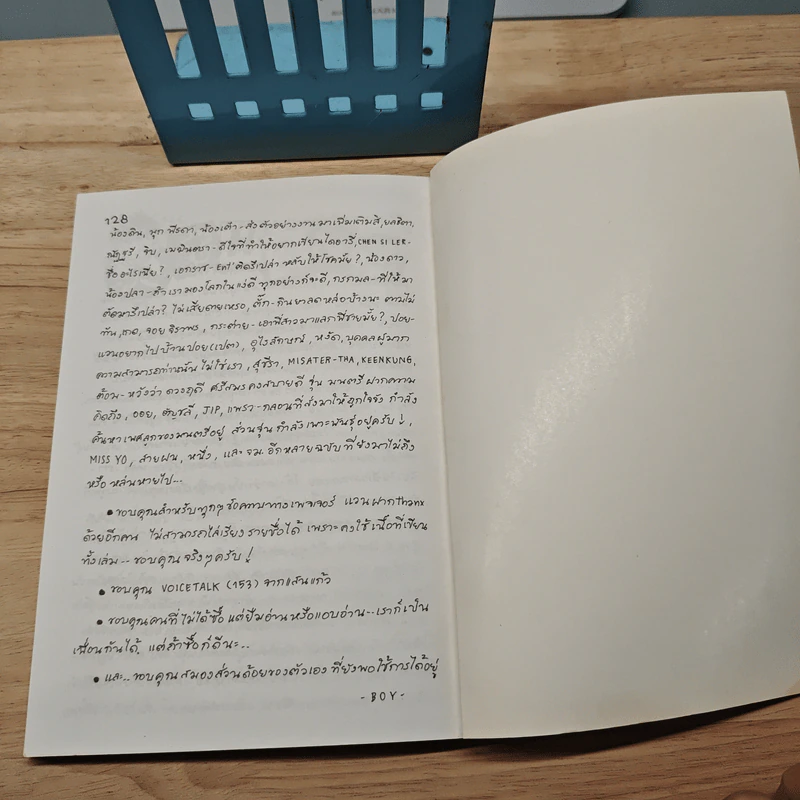 128
น้องดิน, มุก พีรดา, น้องเต๋า - ส่งตัวอย่างงานมาเพิ่มเติมสิ,
จิ๊บ, เมฆินตรา - ดีใจที่ทำให้อยากเขียนไดอารี่, CHEN SI LER-
ชื่ออะไรเนี่ย?, เอกราช - Ent' ติดรึเปล่า หลับให้โชคมั้ย?, น้องดาว,
น้องปลา - ถ้าเรามองโลกในแง่ดี ทุกอย่างก็จะดี, กรกมล - ที่ให้มา
ตัดมารึเปล่า? ไม่เสียดายเหรอ, ตั๊ก - กินยาลดหล่อบ้างนะ ตามไม่
ทัน, จอย จิราพร, กระต่าย - เอาพี่สาวมาแลกพี่ชายมั้ย?, ปอย-
แวนอยากไปบ้านปอย (เปตา), อุไรลักษณ์, หงัด, บุคคลผู้มาก
ความสามารถท่านนั้น ไม่ใช่เรา, สุชีรา, MISATER-THA, KEENKUNG,
ต้อม - หวังว่า ดวงฤดี ศรีสมร คงสบายดี ขุ่น มนตรี ฝากความ
คิดถึง, ออย, อัญชลี, JIP, แพรว - กลอนที่ส่งมาให้ถูกใจจัง กำลัง
ค้นหาเพศลูกของมนตรีอยู่ ส่วนขุ่น กำลังเพาะพันธุ์อยู่ครับ!,
MISS YO, สายฝน, หนึ่ง, และ จม. อีกหลายฉบับ ที่ยังมาไม่ถึง
หรือ หล่นหายไป...
• ขอบคุณสำหรับทุกๆข้อความทางเพจเจอร์ แวนฝาก thanx
ด้วยอีกคน ไม่สามารถไล่เรียงรายชื่อได้ เพราะคงใช้เนื้อที่เขียน
ทั้งเล่ม... ขอบคุณจริงๆครับ!
• ขอบคุณ VOICETALK (153) จากแสนแก้ว
• ขอบคุณคนที่ไม่ได้ซื้อ แต่ยืมอ่าน หรือแอบอ่าน... เราก็เป็น
เพื่อนกันได้, แต่ถ้าซื้อก็ดีนะ...
• และ... ขอบคุณสมองส่วนด้อยของตัวเอง ที่ยังพอใช้การได้อยู่
- BOY -